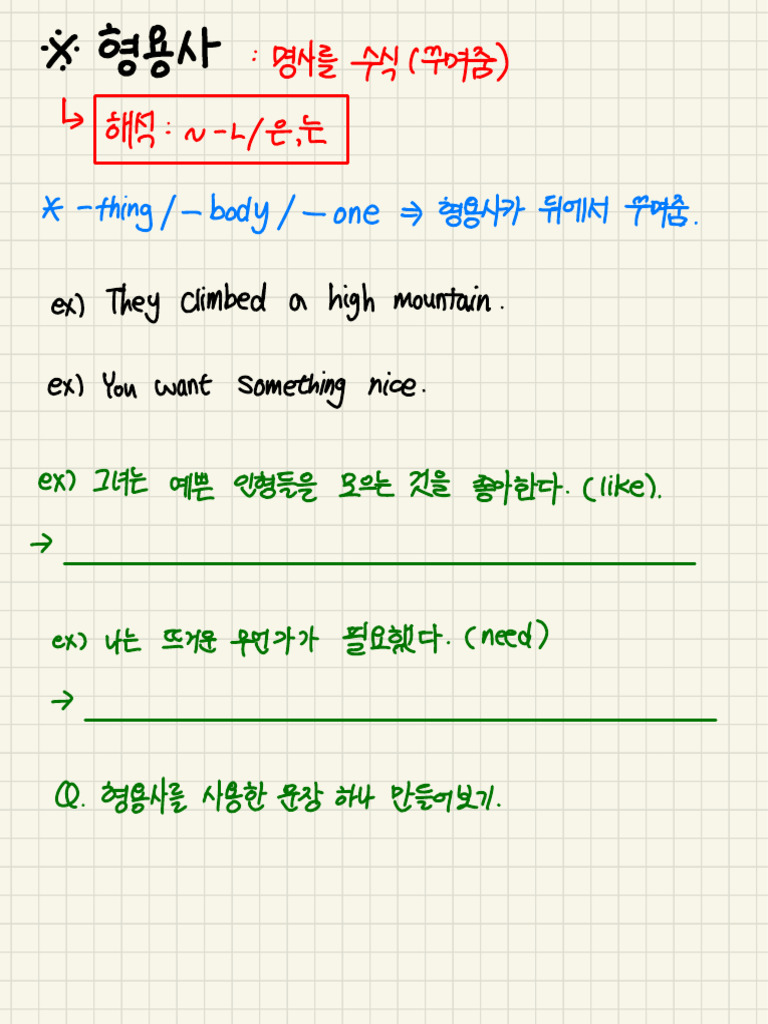 ※ 형용사 : 명사를 수식(꾸며줌)
↳ 해석 : ~ -ㄴ/은,는
* -thing/-body/-one ⇒ 형용사가 뒤에서 꾸며줌.
ex) They climbed a high mountain.
ex) You want something nice.
ex) 그녀는 예쁜 인형들을 모으는 것을 좋아한다. (like).
→
ex) 나는 뜨거운 무언가가 필요했다. (need)
→
Q. 형용사를 사용한 문장 하나 만들어보기.